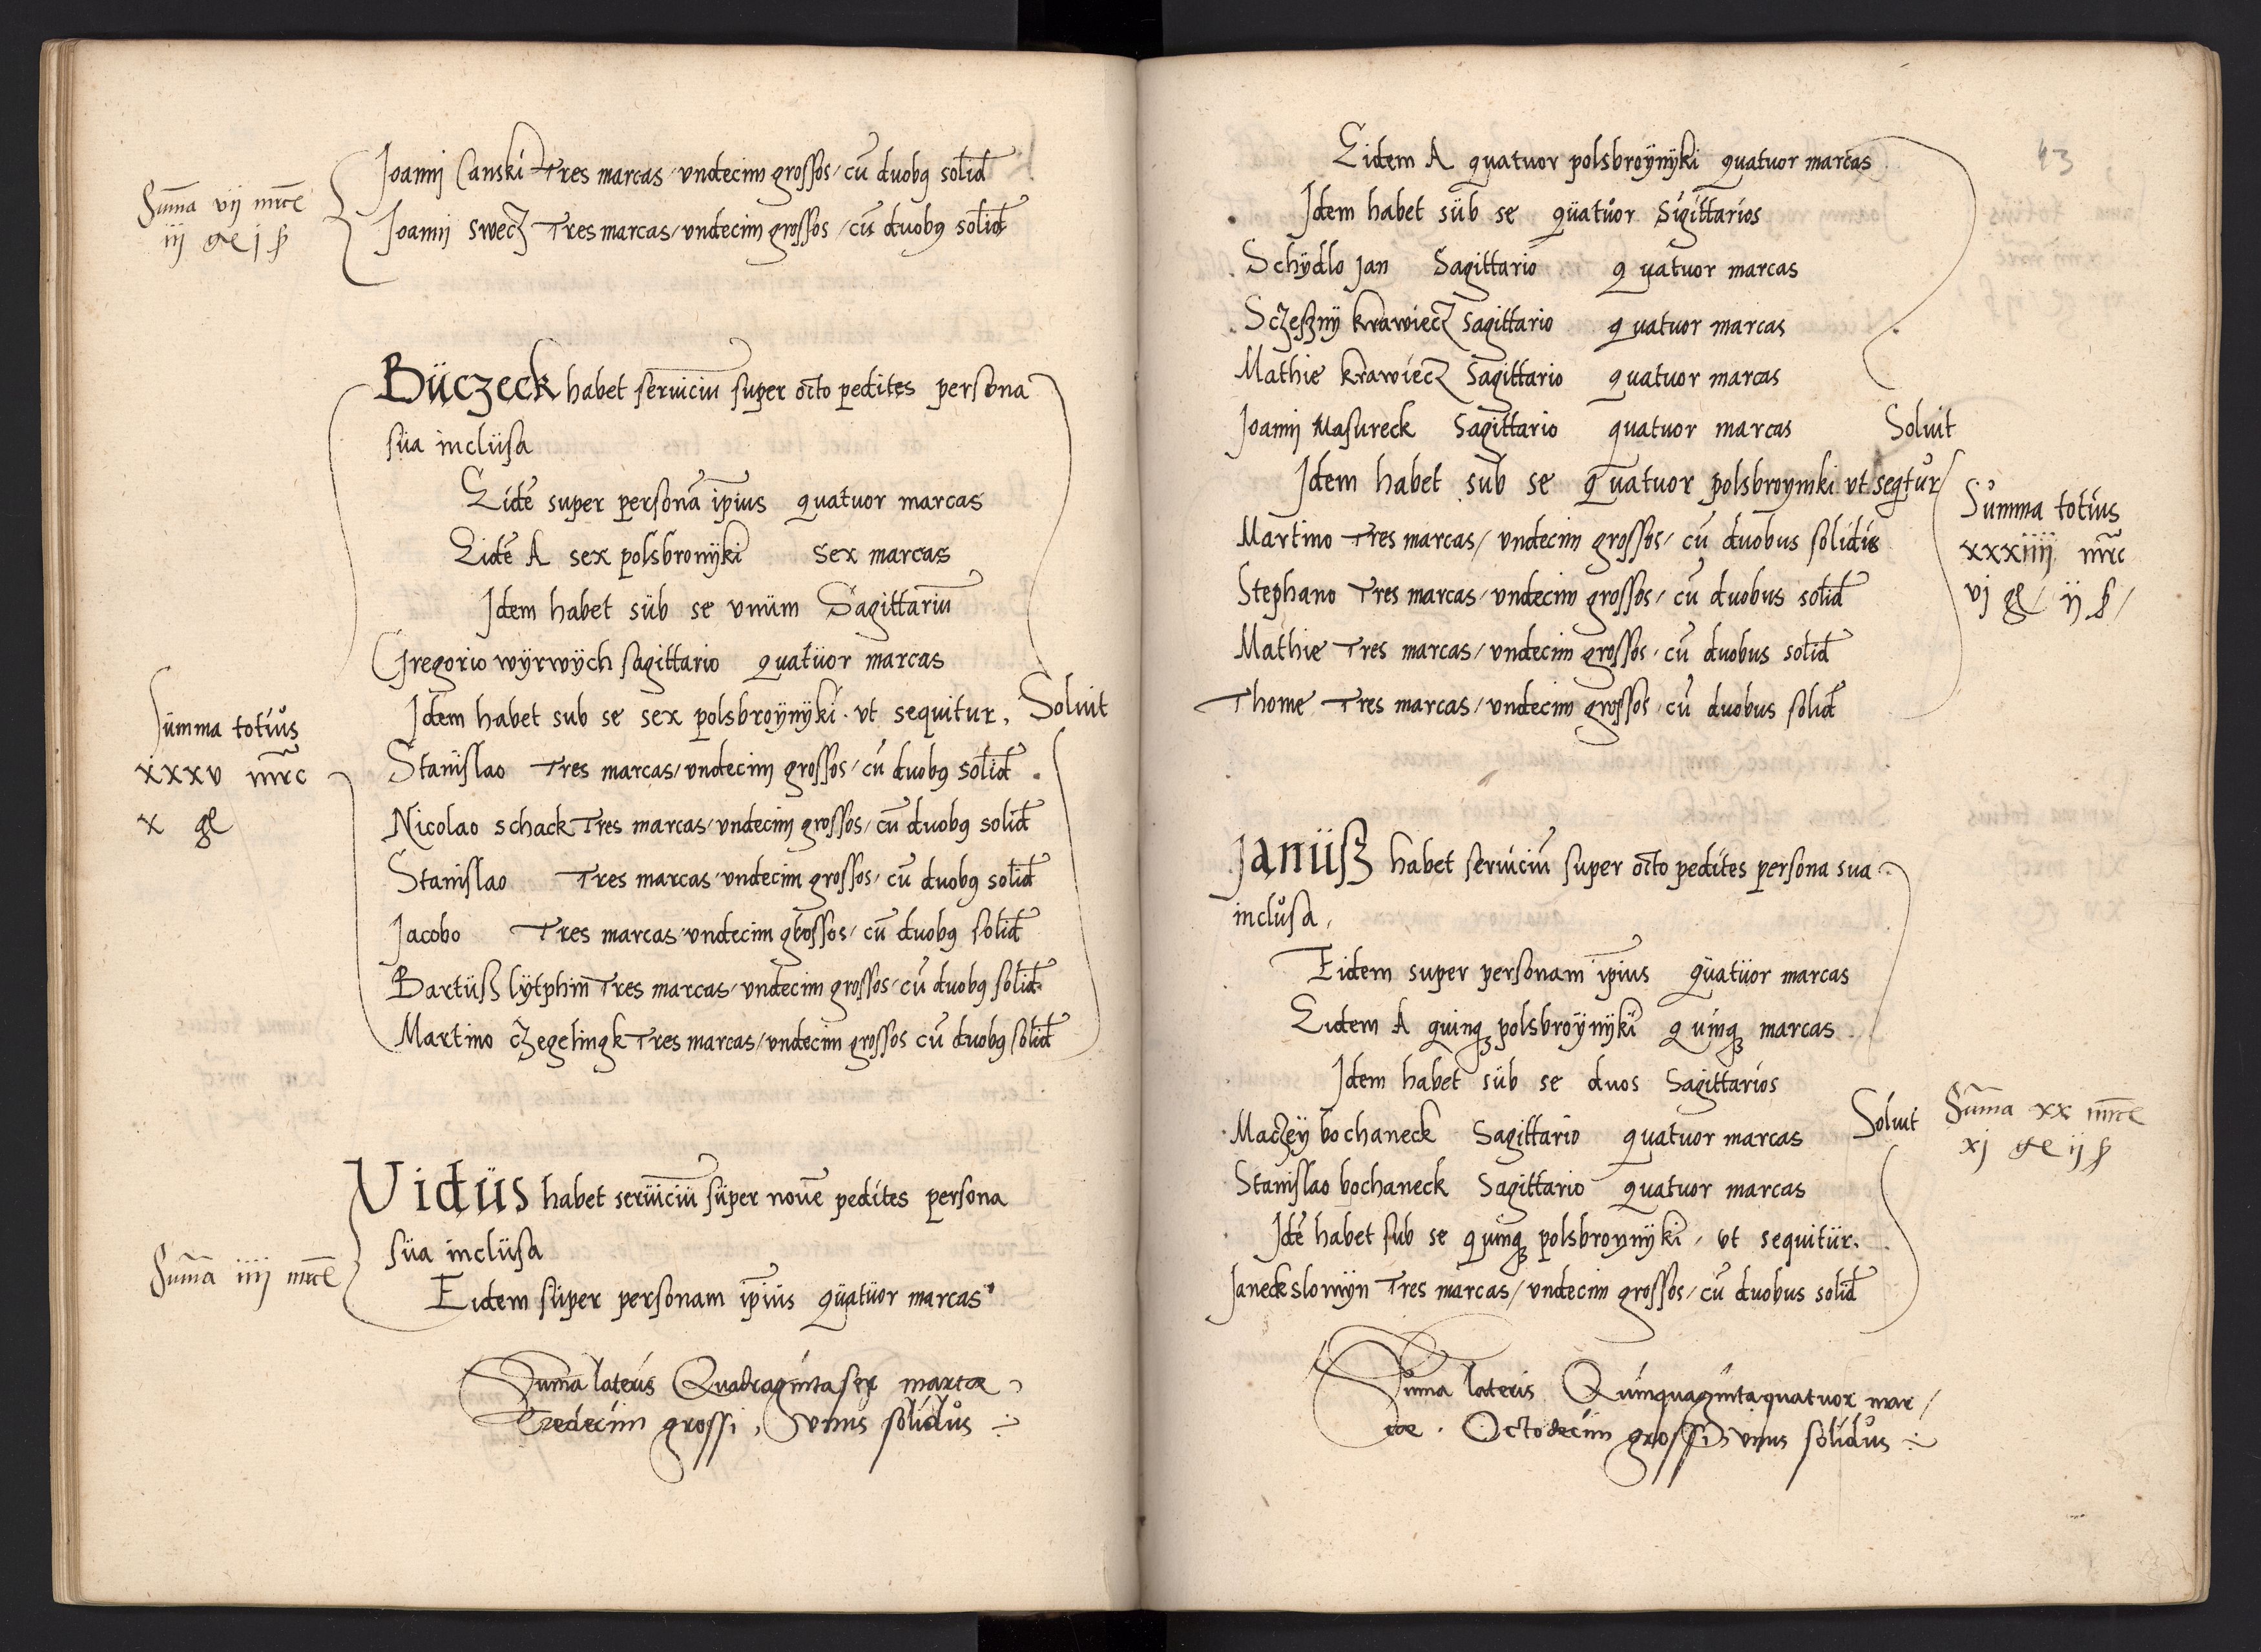 Joanni Canski Tres marcas / undecim grossos / cū duobꝯ solid
Sum̄a vij mrce
Joanni swecz Tres marcas / undecim grossos / cū duobꝯ solid
iij ge j ß
Büczeck habet seruiciū super octo pedites persona
süa inclüsa
Eidē super personā ip̄ius quatuor marcas
Eidē A sex polsbronÿki sex marcas
Idem habet süb se vnüm Sagittariū
Gregorio wÿrwÿch sagittario quatüor marcas
Idem habet sub se sex polsbroÿnÿki . vt sequitur . Soluit
Sümma totius
Stanislao Tres marcas / undecim grossos / cū duobꝯ solid
xxxv mrc
Nicolao schack Tres marcas / undecim grossos / cū duobꝯ solid
x ge
Stanislao Tres marcas / undecim grossos / cū duobꝯ solid
Jacobo Tres marcas / undecim grossos / cū duobꝯ solid
Bartüß lÿtphin Tres marcas / undecim grossos / cū duobꝯ solid
Martino czegelingk Tres marcas / undecim grossos cū duobꝯ solid
Vidüs habet serüiciū süper nouē pedites persona
süa inclüsa
Sum̄a iiij mrce
Eidem süper personam ip̄iüs qüatüor marcas
Sum̄a lateris Quadraginta sex marcæ
Tredecim grossi , vnus solidus
43
Eidem A quatuor polsbroÿnÿki quatuor marcas
Idem habet süb se qüatuor Sigittarios
Schÿdlo jan Sagittario quatuor marcas
Sczesznÿ krawiecz Sagittario quatuor marcas
Mathie krawiecz Sagittario quatuor marcas
Joanni Masureck Sagittario quatuor marcas Soluit
Idem habet sub se quatuor polsbroynki vt seqtur
Summa totius
Martino Tres marcas / undecim grossos / cū duobus solidis
xxxiiij mrc
Stephano Tres marcas / undecim grossos / cū duobus solid
vj ge / ij ß /
Mathie Tres marcas / undecim grossos / cū duobus solid
Thome Tres marcas / undecim grossos / cū duobus solid
Janüß habet seruiciū super octo pedites persona sua
inclusa ,
Eidem super personam ip̄ius qüatüor marcas
Eidem A quinqꝫ polsbroÿnÿki quinqꝫ marcas
Idem habet süb se duos Sagittarios
Maczeÿ bochaneck Sagittario quatuor marcas Soluit
Sum̄a xx mrce
xj ge ij ß
Stanislao bochaneck Sagittario quatuor marcas
Idē habet sub se quinqꝫ polsbroynÿki , vt sequitür .
Janeck slomÿn Tres marcas / undecim grossos / cū duobus solid
Sum̄a lateris Quinquaginta quatuor mar /
cæ . Octodecim grossi , vnus solidus